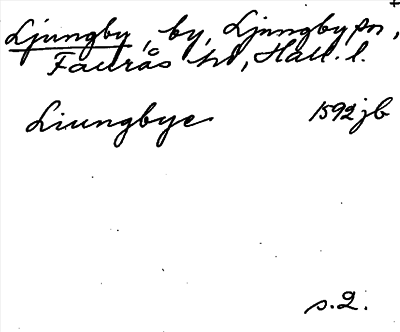 Ljungby, by, Ljungby sn,
Faurås hd, Hall. l.
Liungbye 1592 jb
s. 2.